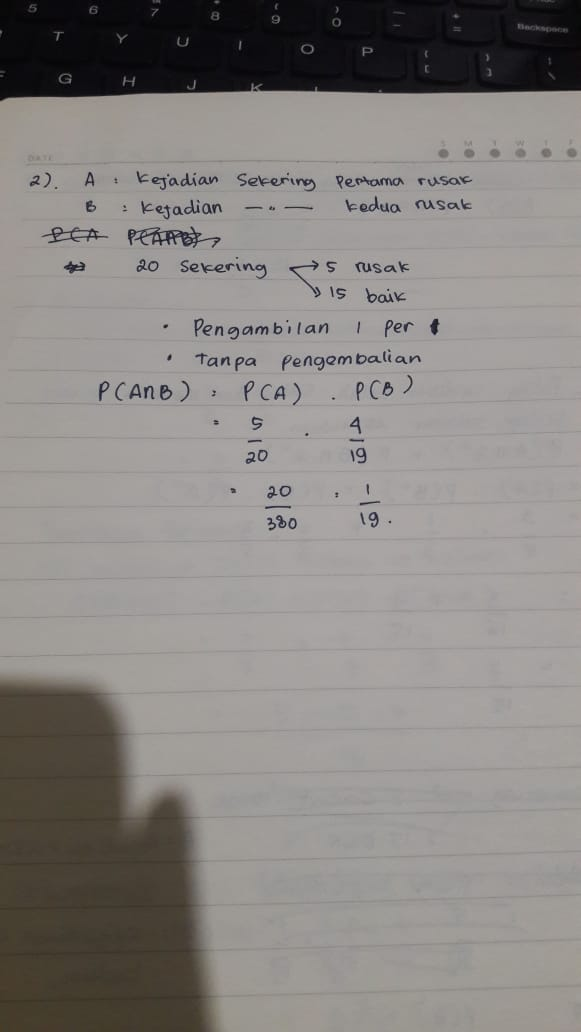 5 6 7 8 9 0 — + =  Backspace
T Y U I O P { [ } ] \
G H J K
DATE S M T W T F
2). A : Kejadian Sekering Pertama rusak
B : Kejadian —"— kedua rusak
20 Sekering → 5 rusak
→ 15 baik
• Pengambilan 1 per 1
• Tanpa pengembalian
P(A∩B) = P(A) . P(B)
= 5/20 . 4/19
= 20/380 = 1/19.